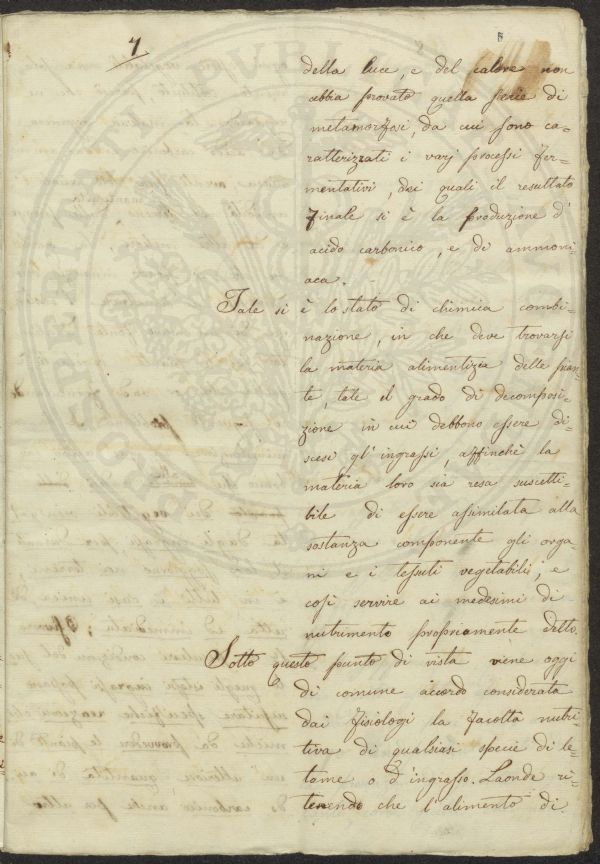 7
della luce, e del calore non
abbia provato quella serie di
metamorfosi, da cui sono ca=
ratterizzati i varj processi fer=
mentativi, dei quali il resultato
finale si è la produzione d'
acido carbonico, e di ammoni=
aca.
Tale si è lo stato di chimica combi=
nazione, in che deve trovarsi
la materia alimentizia delle pian=
te, tale il grado di decomposi=
zione in cui debbono essere di=
scesi gl'ingrassi, affinchè la
materia loro sia resa suscetti=
bile di essere assimilata alla
sostanza componente gli orga=
ni e i tessuti vegetabili, e
così servire ai medesimi di
nutrimento propriamente detto.
Sotto questo punto di vista viene oggi
di comune accordo considerata
dai fisiologi la facoltà nutri=
tiva di qualsiasi specie di le=
tame o d'ingrasso. Laonde ri=
tenendo che l'alimento di